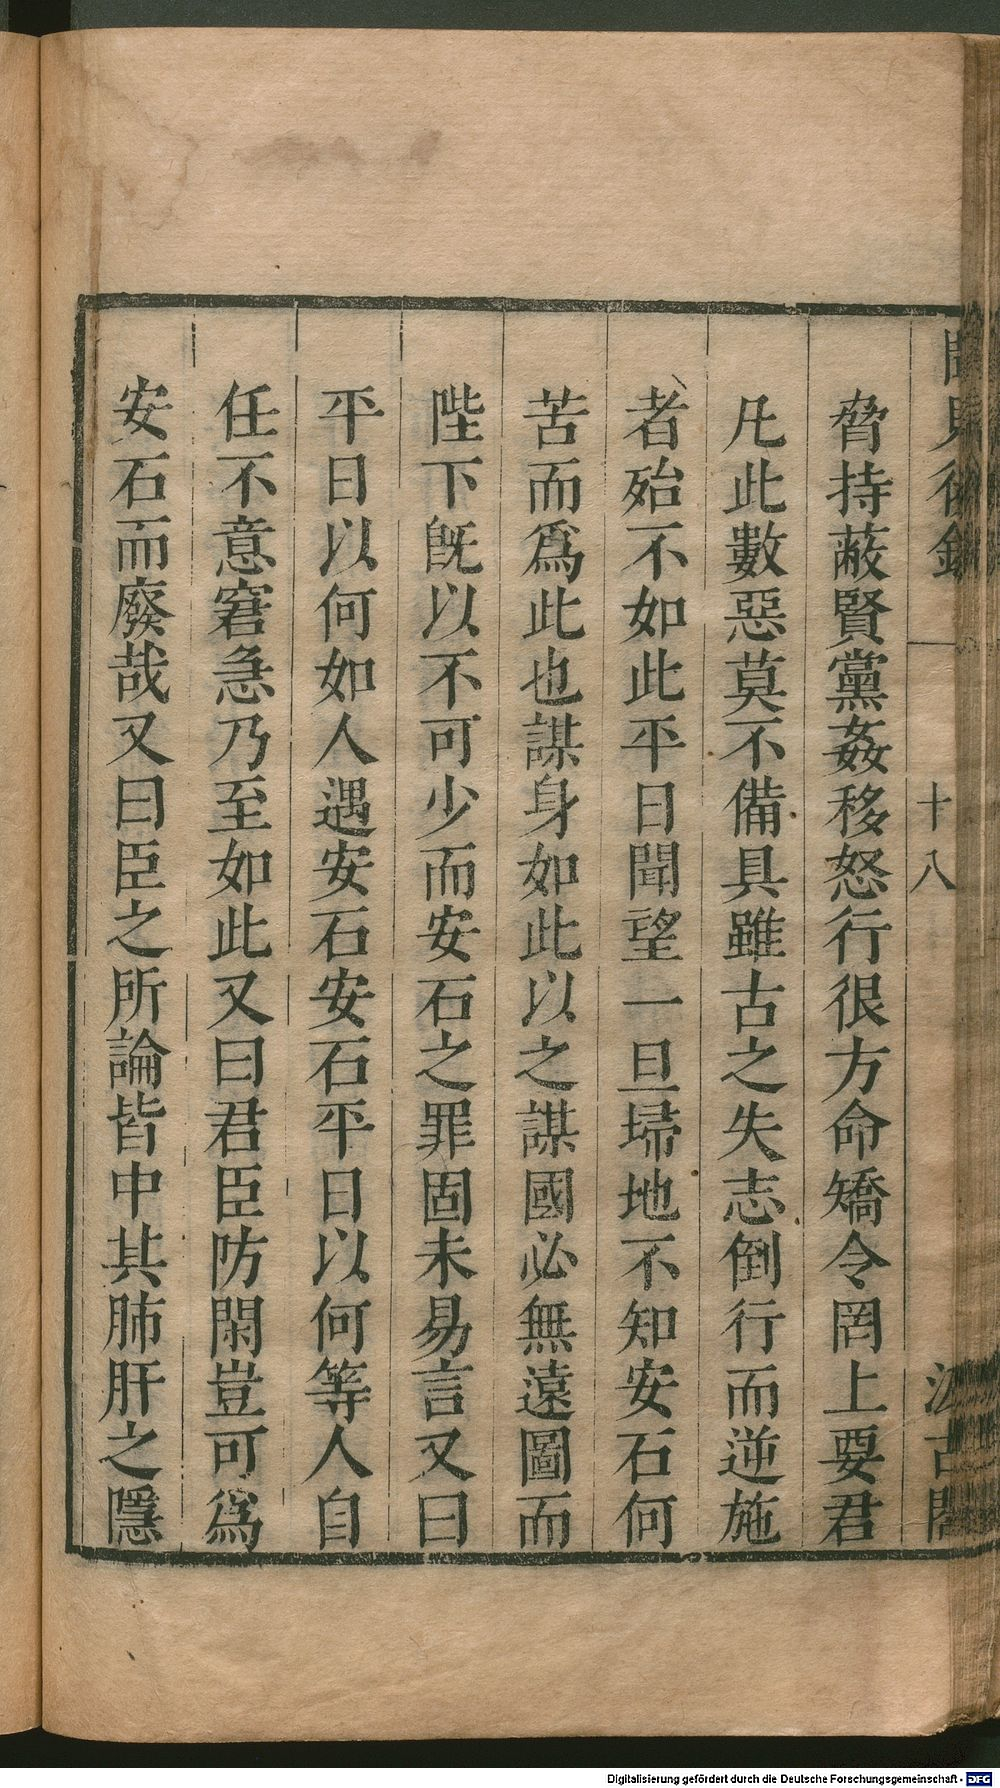 十八
脅持蔽賢黨姦移怒行很方命矯令罔上要君
凡此數惡莫不備具雖古之失志倒行而逆施
者殆不如此平日聞望一旦埽地不知安石何
苦而爲此也謀身如此以之謀國必無遠圖而
陛下旣以不可少而安石之罪固未易言又曰
平日以何如人遇安石安石平日以何等人自
任不意窘急乃至如此又曰君臣防閑豈可爲
安石而廢哉又曰臣之所論皆中其肺肝之隱
Digitalisierung gefördert durch die Deutsche Forschungsgemeinschaft - DFG